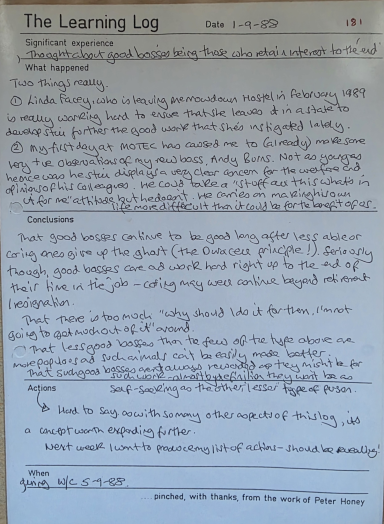 The Learning Log Date 1-9-88 181
Significant experience
Thought about good bosses being those who retain interest to the end.
What happened
Two things really.
① Linda Facey, who is leaving Memowdown Hostel in February 1989
is really working hard to ensure that she leaves it in a state to
develop still further the good work that she's instigated lately.
② My first day at MOTEC has caused me to (already) make some
very +ve observations of my new boss, Andy Burns. Not as young as
he once was he still displays a very clear concern for the welfare and
opinions of his colleagues. He could take a "stuff all this what's in
it for me" attitude but he doesn't. He carries on making his own
life more difficult than it could be for the benefit of us.
Conclusions
That good bosses continue to be good long after less able or
caring ones give up the ghost (the Duracell principle!). Seriously
though, good bosses care and work hard right up to the end of
their time in the job - caring may well continue beyond retirement
/resignation.
That there is too much "why should I do it for them, I'm not
going to get much out of it" around.
That less good bosses than the few of the type above are
more populous and such animals can't be easily made better.
That such good bosses aren't always rewarded as they might be for
such work - almost by definition they won't be as
self-seeking as the other lesser type of person.
Actions
Hard to say as with so many other aspects of this log, it's
a concept worth expanding further.
Next week I want to produce my list of actions - should be revealing!
When
during W/C 5-9-88.
.... pinched, with thanks, from the work of Peter Honey